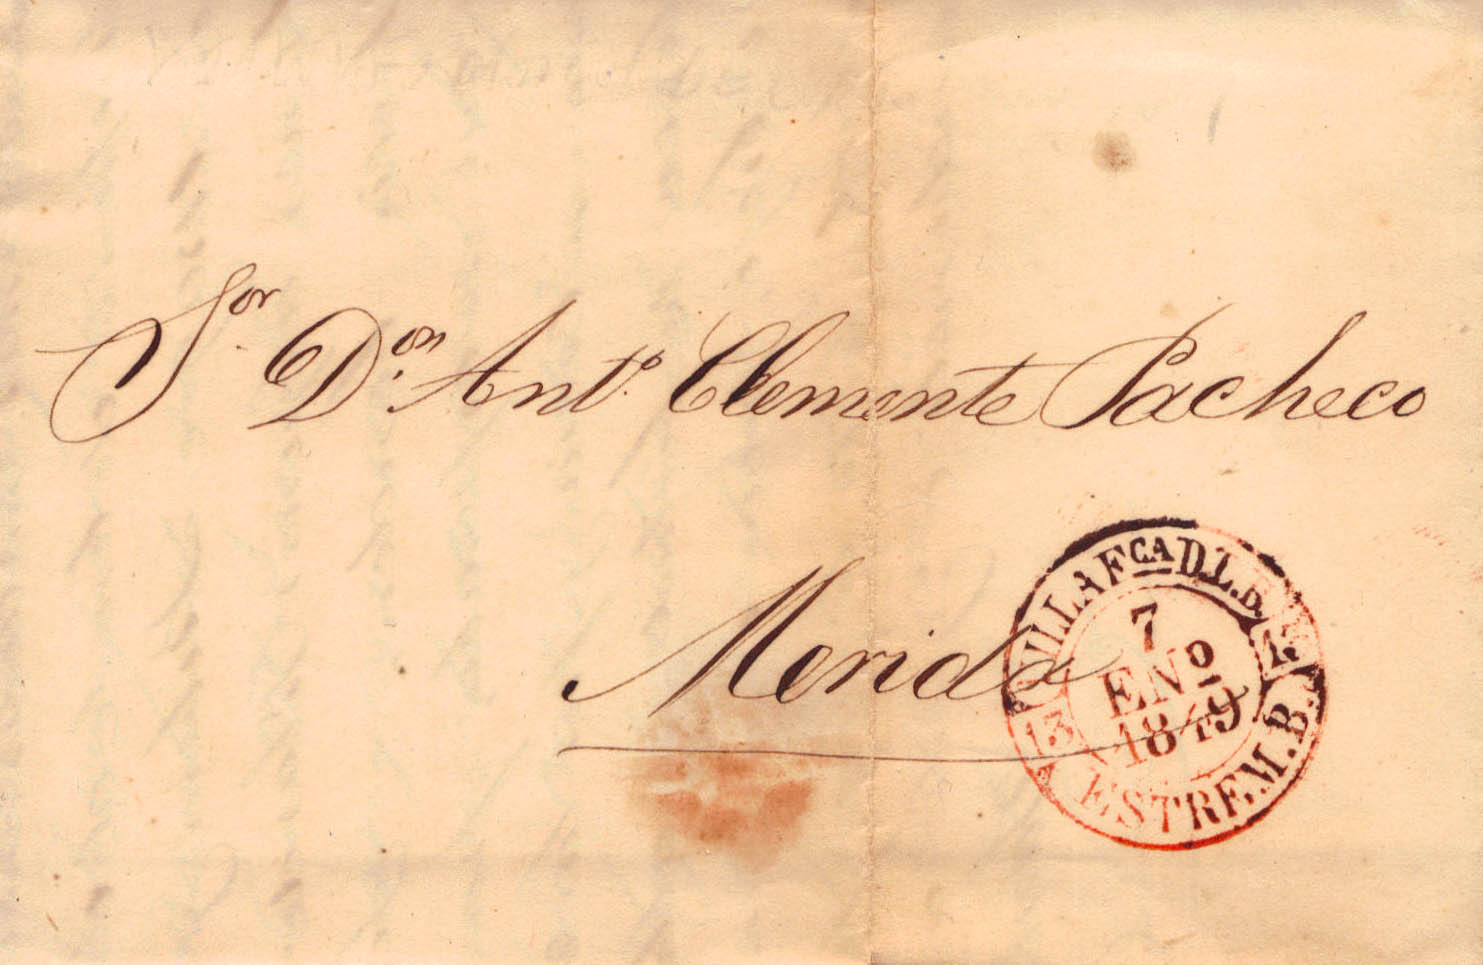 Sor. Don. Anto. Clemente Pacheco
Merida
VILLAFCA D.L.B.
7
ENO
1849
13
13
ESTREM.B.